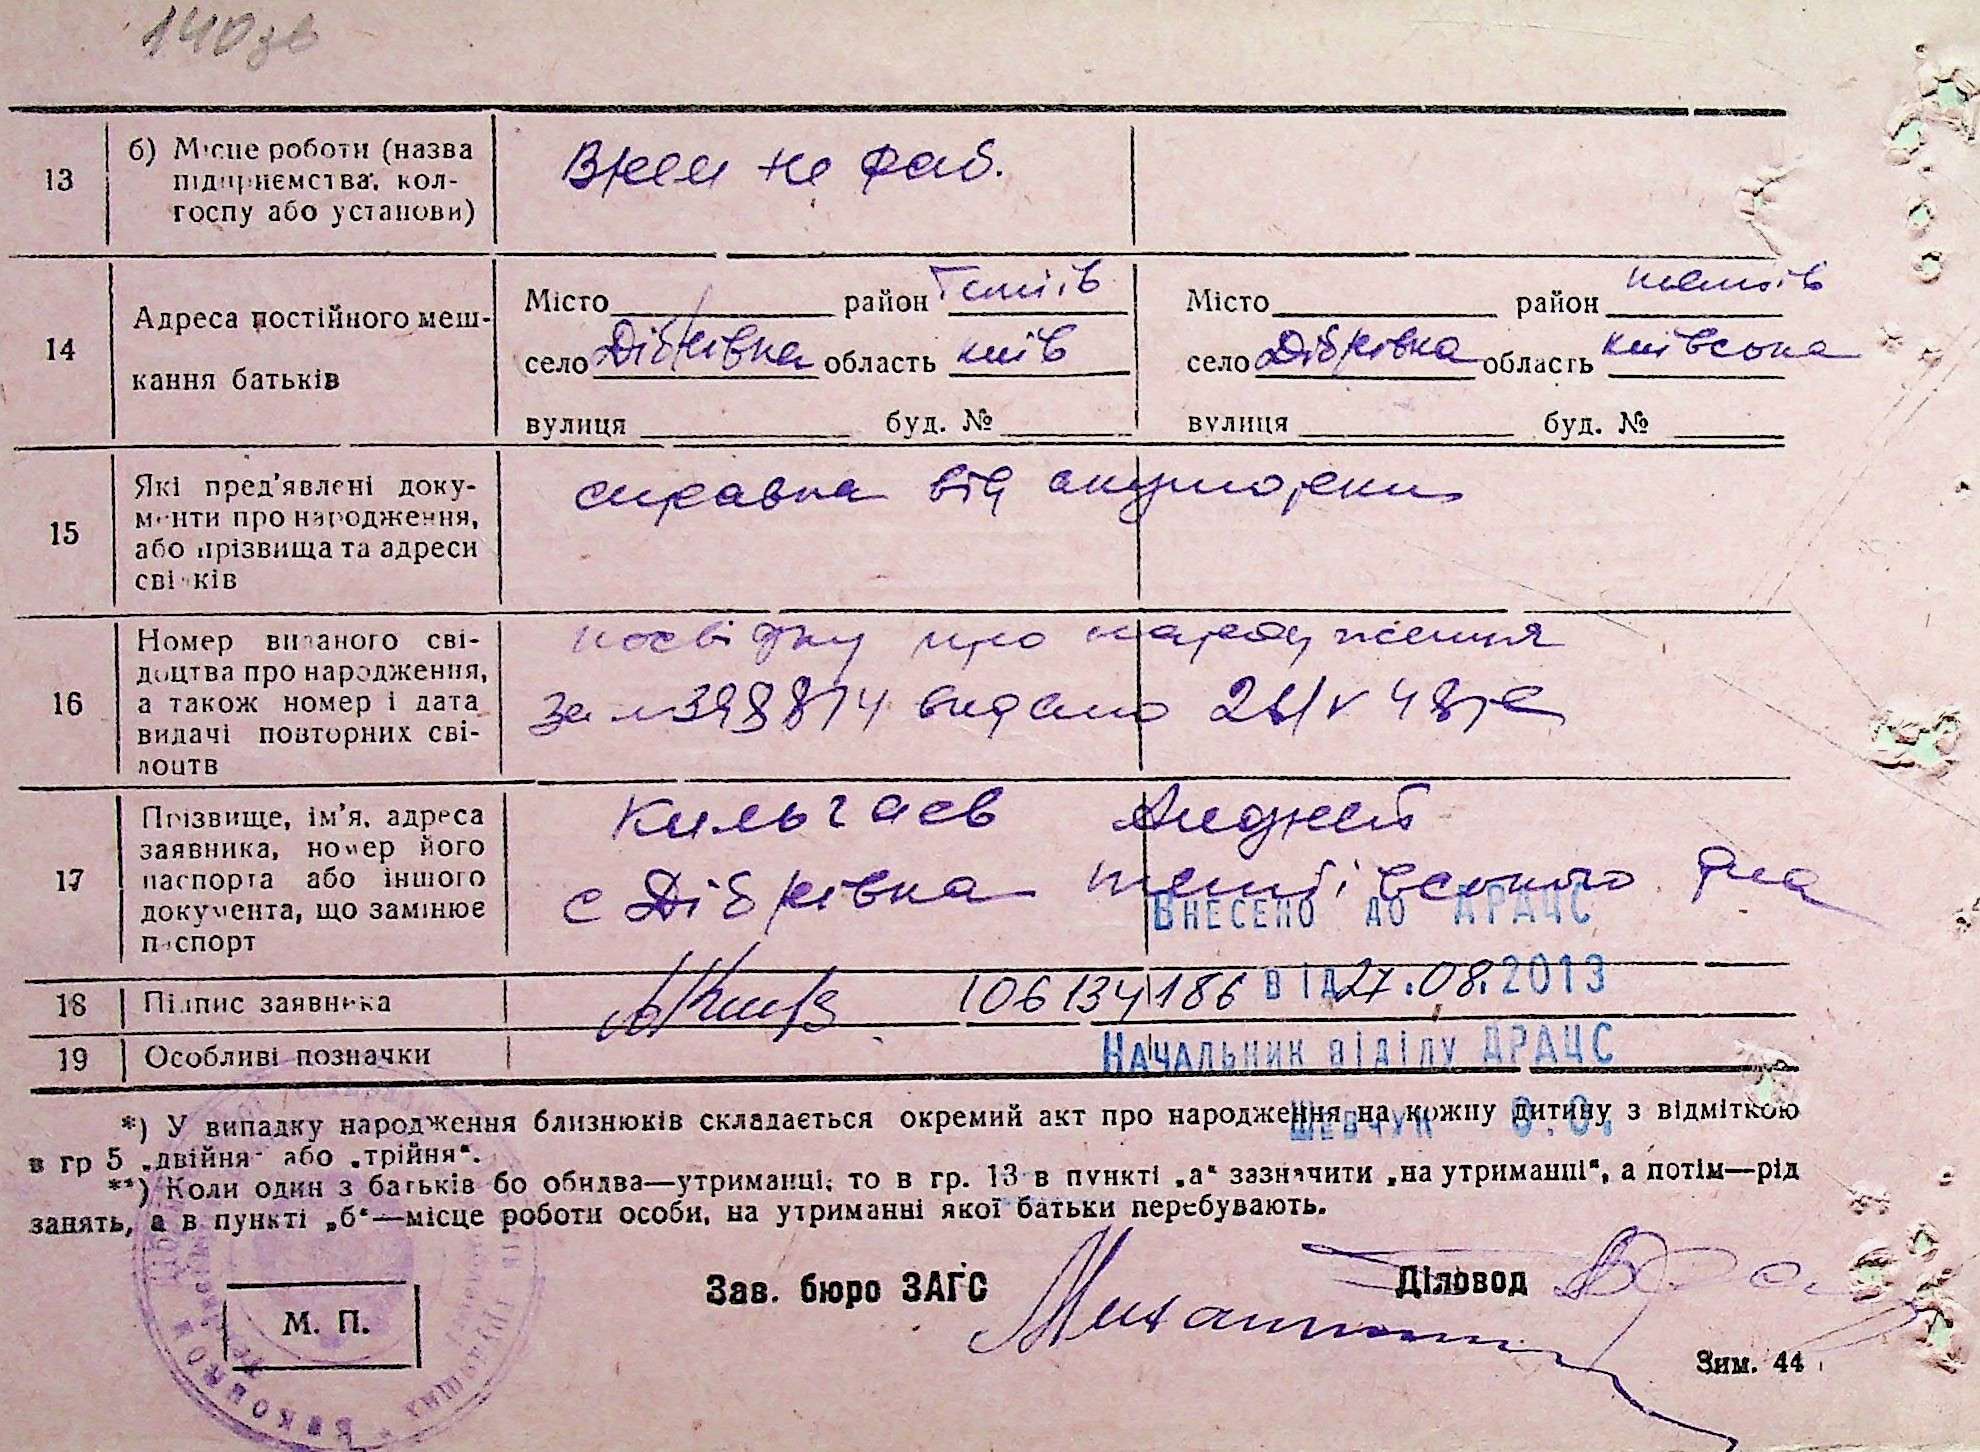 140зв
13 б) Місце роботи (назва підприємства, колгоспу або установи)
Врем не раб.
14 Адреса постійного мешкання батьків
Місто район Тетіїв
село Дібрівка область київ
вулиця буд. №
Місто район тетіїв
село Дібрівка область київська
вулиця буд. №
15 Які пред'явлені документи про народження, або прізвища та адреси свідків
справка від акушерки
16 Номер виданого свідоцтва про народження, а також номер і дата видачі повторних свідоцтв
посвідку про народження
за № видано 48
17 Прізвище, ім'я, адреса заявника, номер його паспорта або іншого документа, що замінює паспорт
Андрей
с Дібрівка тетіївського р-на
Внесено до ДРАЦС
18 Підпис заявника
106134186 від 27.08.2013
19 Особливі позначки
Начальник відділу ДРАЦС
Шевчук О.О.
*) У випадку народження близнюків складається окремий акт про народження на кожну дитину з відміткою
в гр 5 „двійня" або „трійня".
**) Коли один з батьків бо обидва—утриманці, то в гр. 13 в пункті „а" зазначити „на утриманні", а потім—рід
занять, а в пункті „б"—місце роботи особи, на утриманні якої батьки перебувають.
Зав. бюро ЗАГС
Діловод
М. П.
Зим. 44